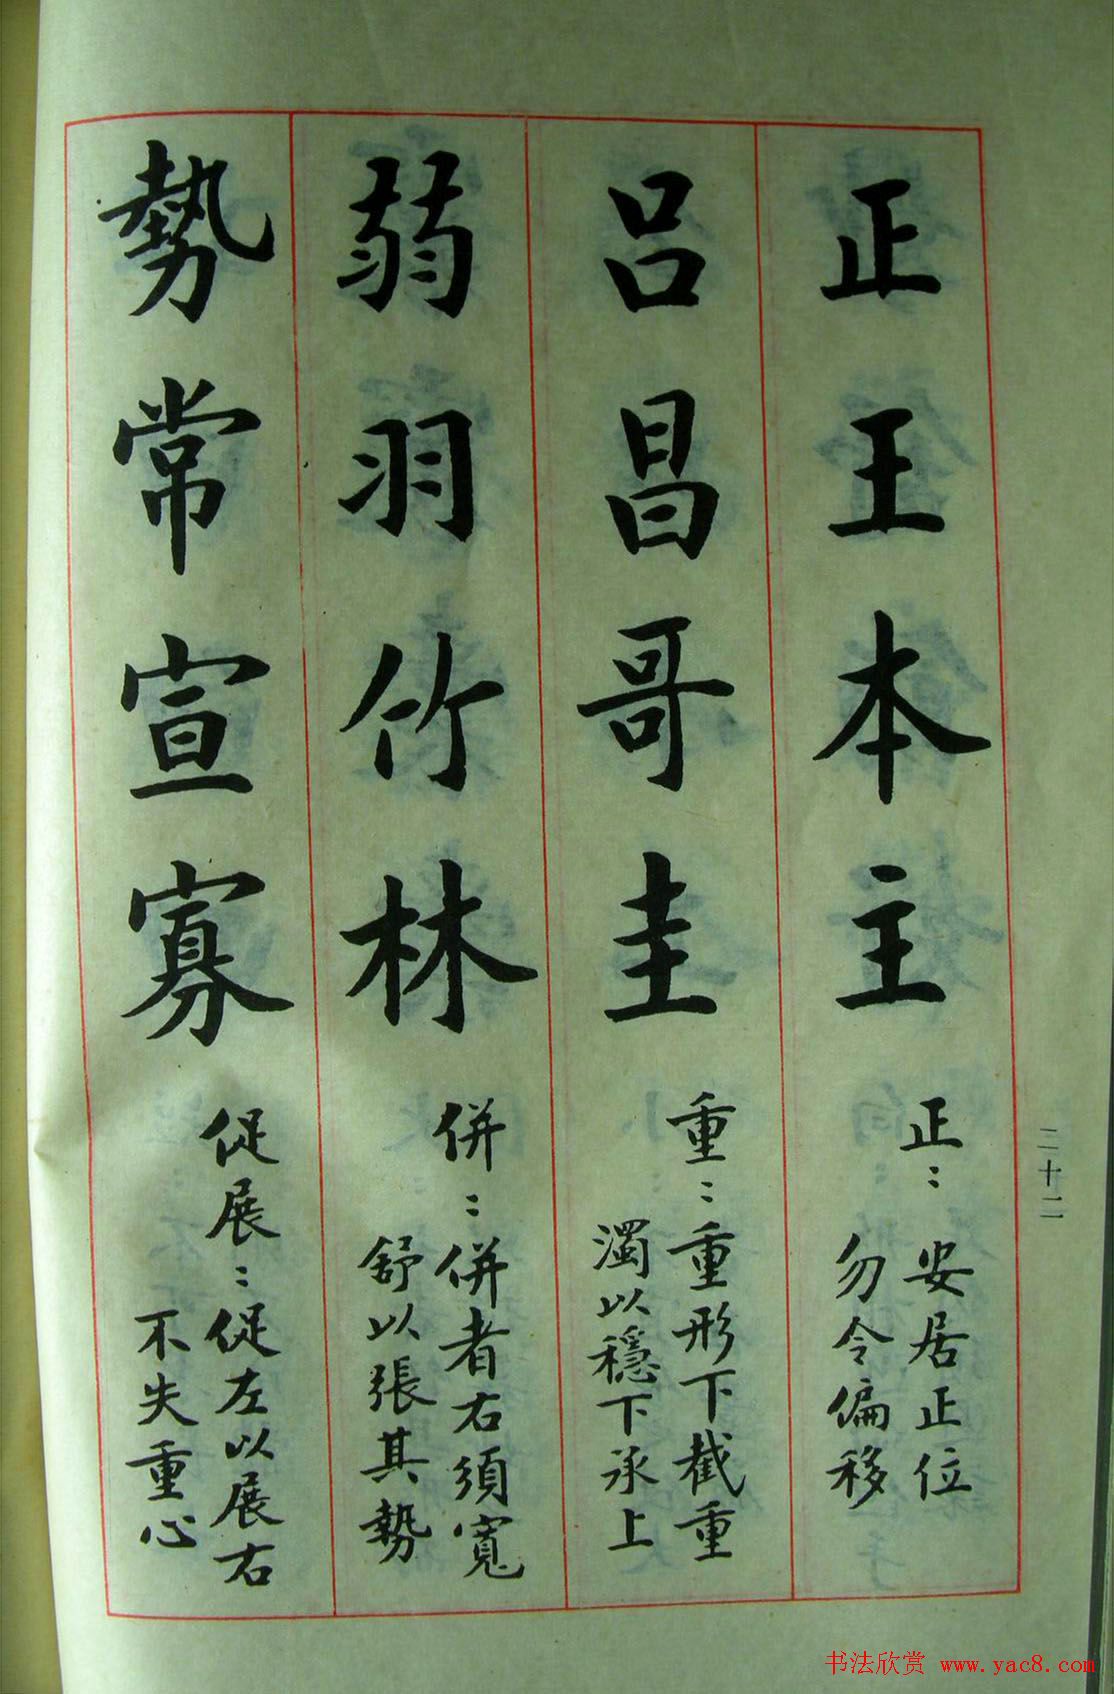 正王本主
正：安居正位
勿令偏移
吕昌哥圭
重：重形下截重
濁以穩下承上
弱羽竹林
併：併者右須寬
舒以張其勢
勢常宣寡
促展：促左以展右
不失重心
二十二
书法欣赏 www.yac8.com